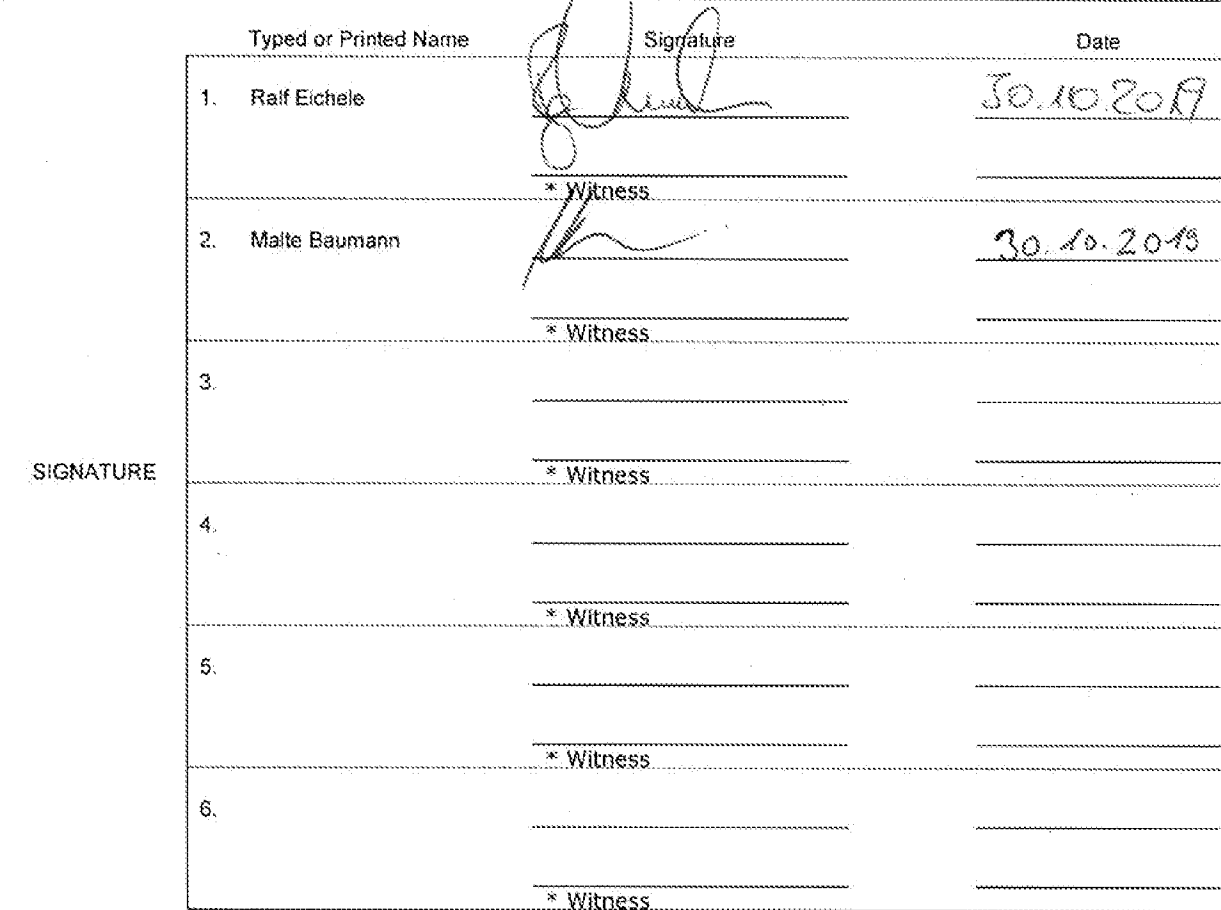 Typed or Printed Name Signature Date
1. Ralf Eichele 30.10.2019
* Witness
2. Malte Baumann 30.10.2019
* Witness
3.
* Witness
SIGNATURE
4.
* Witness
5.
* Witness
6.
* Witness